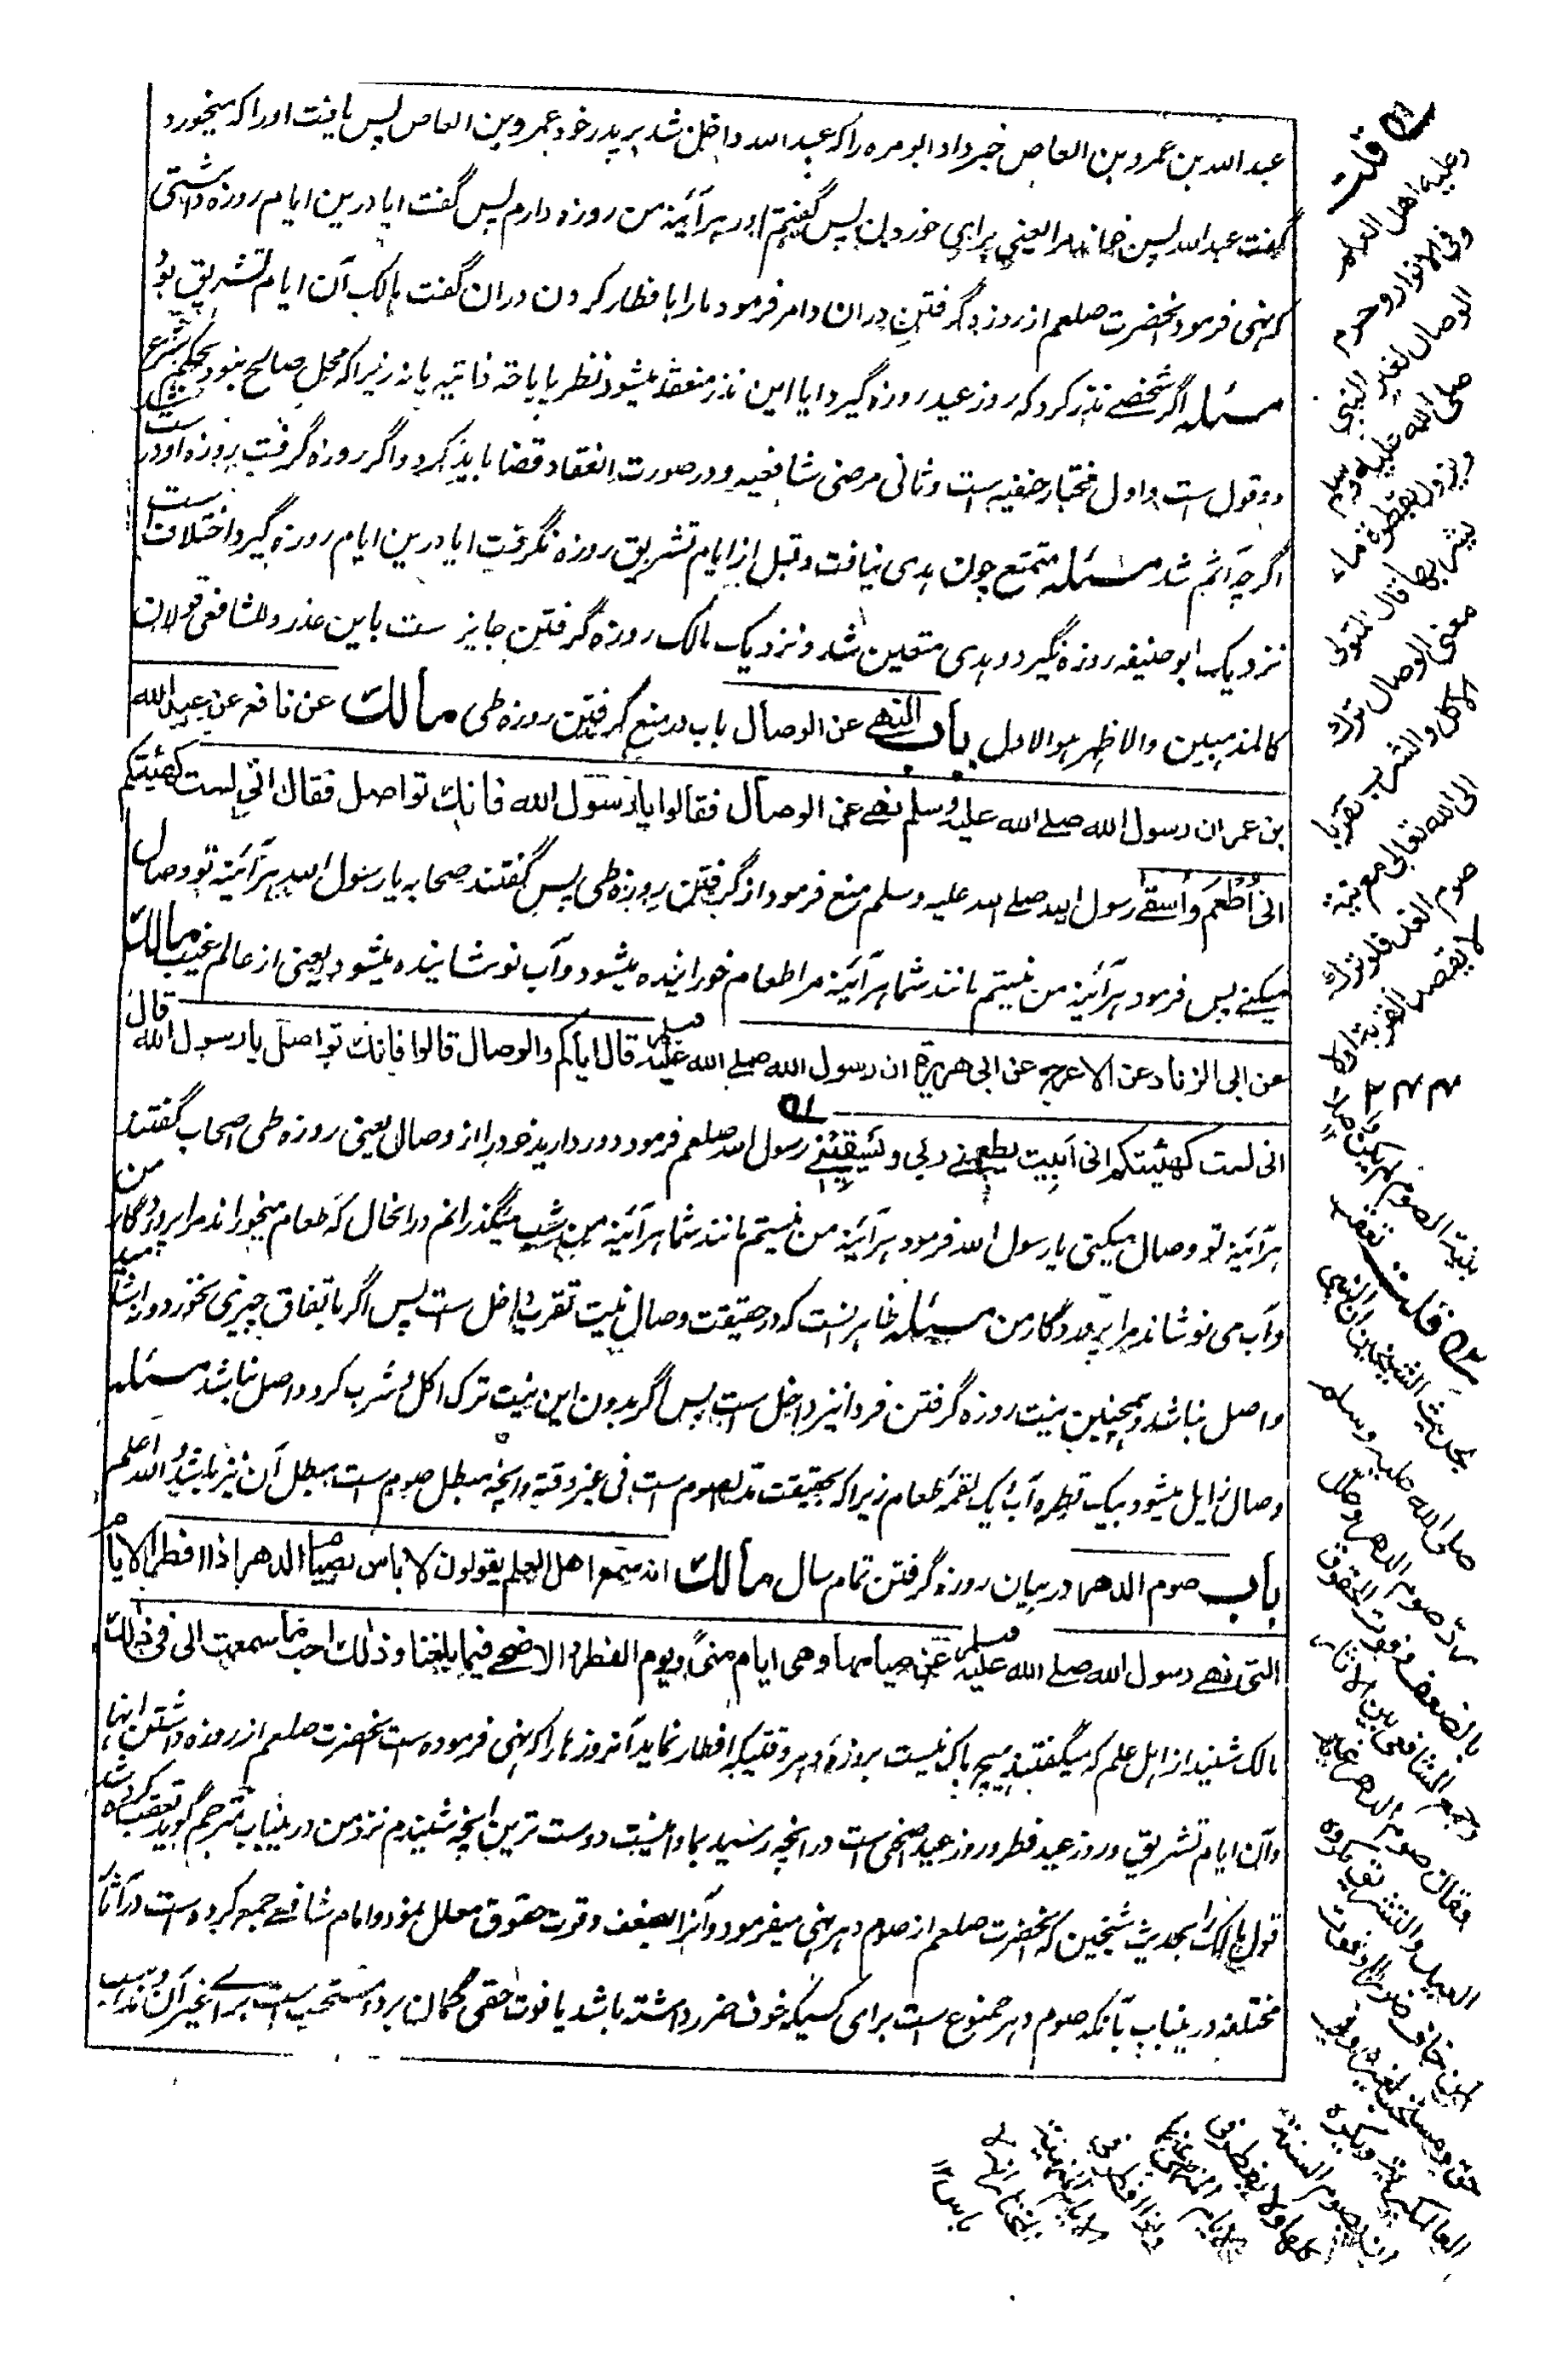 عبد الله بن عمرو بن العاص خبر داد ابو مره را که عبد الله داخل شد بر پدر خود عمرو بن العاص پس یافت او را که میخورد
گفت عبد الله پس خواند مرا یعنی برای خوردن پس گفتم او را هر آئینه من روزه دارم پس گفت ایا درین ایام روزه داشتی
که نهی فرمود آنحضرت صلعم از روزه گرفتن دران و امر فرمود ما را بافطار کردن دران گفت مالک آن ایام تشریق بود
مسئله اگر شخصے نذر کرد که روز عید روزه گیرد ایا این نذر منعقد میشود نظر باباحة ذاتیه یا نه زیرا که محل صالح نبود بحکم شرع
دو قول ست و اول مختار حنفیه است و ثانی مرضی شافعیه و در صورت انعقاد قضا باید کرد و اگر روزه گرفت روزه او درست
اگرچه آثم شد مسئله متمتع چون هدی نیافت و قبل از ایام تشریق روزه نگرفت ایا درین ایام روزه گیرد اختلاف است
نزدیک ابو حنیفه روزه نگیرد و هدی متعین شد و نزدیک مالک روزه گرفتن جایز ست باین عذر و للشافعی قولان
کالمذهبین والاظهر هو الاول باب النهے عن الوصال باب در منع گرفتن روزه طی مالك عن نافع عن عبد الله
بن عمر ان رسول الله صلے الله علیه وسلم نهے عن الوصال فقالوا یا رسول الله فانك تواصل فقال انی لست كهیئتكم
انی اُطْعَم وَاُسقٰے رسول الله صلے الله علیه وسلم منع فرمود از گرفتن روزه طی پس گفتند صحابه یا رسول الله هر آئینه تو وصال
میکنے پس فرمود هر آئینه من نیستم مانند شما هر آئینه مرا طعام خورانیده میشود و آب نوشانیده میشود یعنی از عالم غیب مالك
عن ابی الزناد عن الاعرج عن ابی هریرة ان رسول الله صلے الله علیه وسلم قال ایاکم والوصال قالوا فانك تواصل یا رسول الله قال
انی لست كهیئتكم انی اَبِیت یطعمنے ربی ویَسْقِیْنے رسول الله صلعم فرمود دور دارید خود را از وصال یعنی روزه طی اصحاب گفتند
هر آئینه تو وصال میکنی یا رسول الله فرمود هر آئینه من نیستم مانند شما هر آئینه من شب میگذرانم درانحال که طعام میخوراند مرا پروردگار من
و آب می نوشاند مرا پروردگار من مسئله ظاهر آنست که در حقیقت وصال نیت تقرب داخل ست پس اگر باتفاق چیزی نخورد و نیاشامید
واصل نباشد و همچنین نیت روزه گرفتن فردا نیز داخل است پس اگر بدون این نیت ترک اکل و شرب کرد واصل نباشد مسئله
وصال زایل میشود بیک قطره آب و یک لقمه طعام زیرا که بحقیقت صوم است فی غیر وقته و آنچه مبطل صوم است مبطل آن نیز باشد والله اعلم
باب صوم الدهر در بیان روزه گرفتن تمام سال مالك انه سمع اهل العلم یقولون لا باس بصیام الدهر اذا افطر الایام
التی نهے رسول الله صلے الله علیه وسلم عن صیامها وهی ایام منًی ویوم الفطر والاضحے فیما بلغنا وذلك احب ما سمعت الی فی ذلك
مالک شنید از اهل علم که میگفتند هیچ باک نیست بروزه دهر وقتیکه افطار نماید آنروزها را که نهی فرموده است آنحضرت صلعم از روزه داشتن آنها
و آن ایام تشریق و روز عید فطر و روز عید اضحی است درانچه رسید بما و اینست دوست ترین آنچه شنیدم نزد من درینباب مترجم گوید تعقب کرده شد
قول مالک را بحدیث شیخین که آنحضرت صلعم از صوم دهر نهی میفرمود و آنرا بضعف و فوت حقوق معلل نمود و امام شافعے جمع کرده است در آثار
مختلفه درینباب بآنکه صوم دهر ممنوع است برای کسیکه خوف ضرر داشته باشد یا فوت حقی گمان برد و مستحب است براے غیر آن
قلت
وعلیه اهل العلم
وفی الانوار وحرم
الوصال لغیر النبی
صلی الله علیه وسلم
ویزول بقطرة ماء
یشربها قال المتولی
معنی الوصال ترك
الاكل والشرب تقربا
الی الله تعالی مع نیة
صوم الغد فلو ترك
بنیة الصوم لم یكن
قلت تعقب
بحدیث الشیخین ان النبی
صلی الله علیه وسلم
رد صوم الدهر وعلل
بالضعف وفوت الحقوق
وجمع الشافعی بین الاثار
فقال صوم الدهر غیر
العید والتشریق مکروه
لمن خاف ضررا او فوت
حق ومستحب لغیره وفی
العالمگیریة ویکره